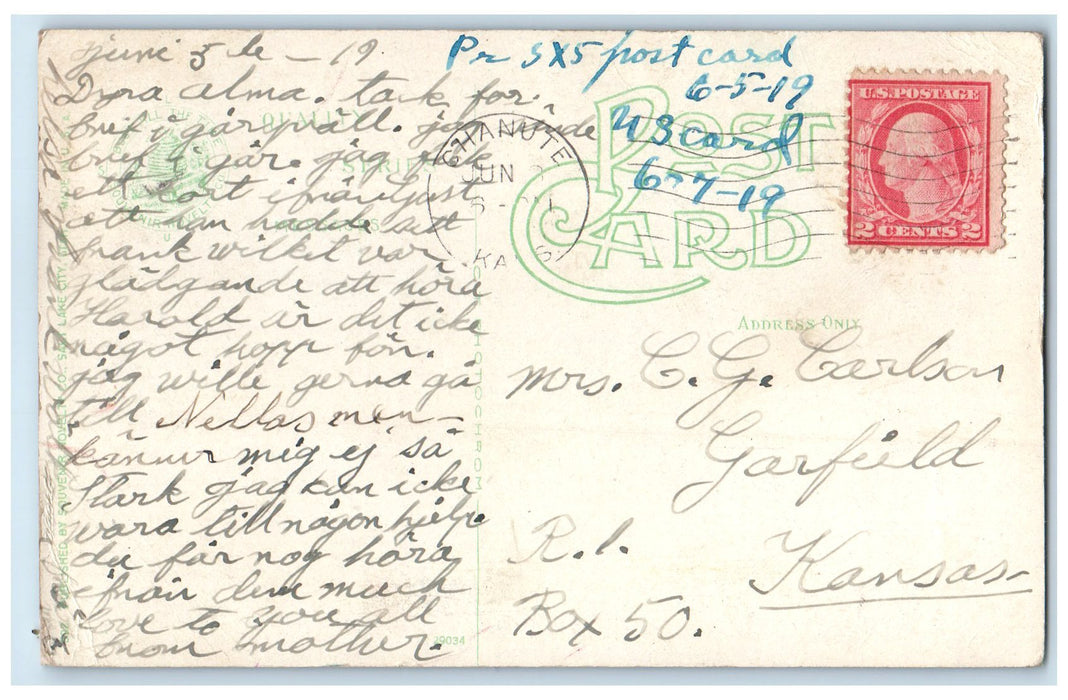 juni 5 te - 19
Dyra Alma. tack for
bref i går kväll. jag sende
bref i går. jag fick
ett kort ifrån just
att han nådde dit
frank wilket var
glädgande att höra
Harold är det icke
något hopp fön.
jag wille gerna gå
till Nellas men -
känner mig ej så
stark jag kan icke
wara till någon hjelp.
du får nog höra
ifrån dem much
love to you all
from mother.
Pr 3X5 post card
6-5-19
US card
6-7-19
QUALITY
SERIES
CHANUTE
JUN
KANS
POST
CARD
U.S. POSTAGE
2 CENTS 2
ADDRESS ONLY
Mrs. C. G. Carlson
Garfield
R. 1.
Kansas
Box 50.
PUBLISHED BY SOUVENIR NOVELTY CO., SALT LAKE CITY, UTAH
PHOTOCHROM
29034